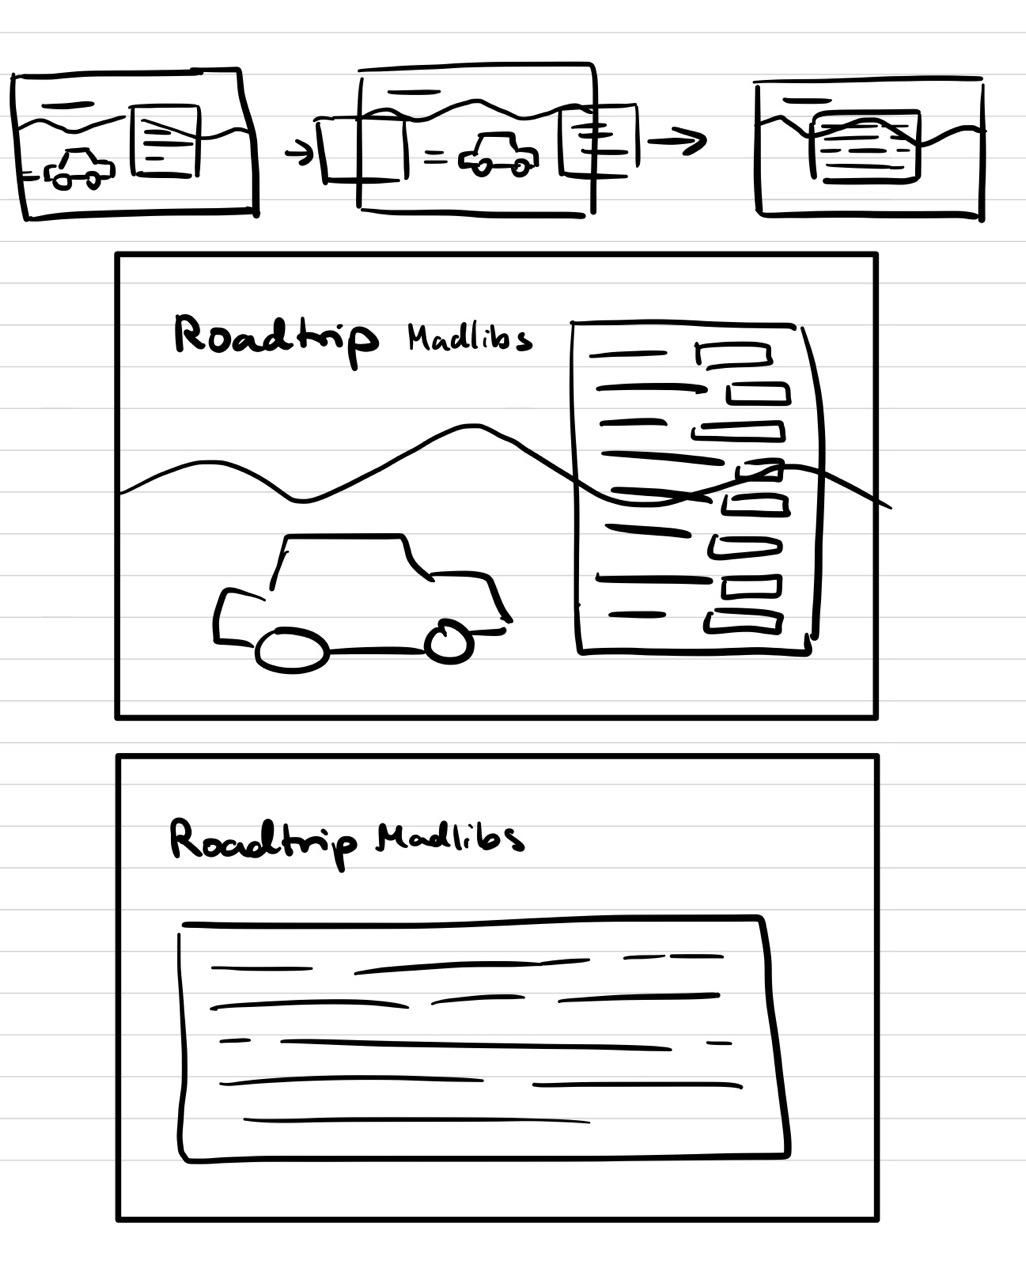 Roadtrip Madlibs
Roadtrip Madlibs